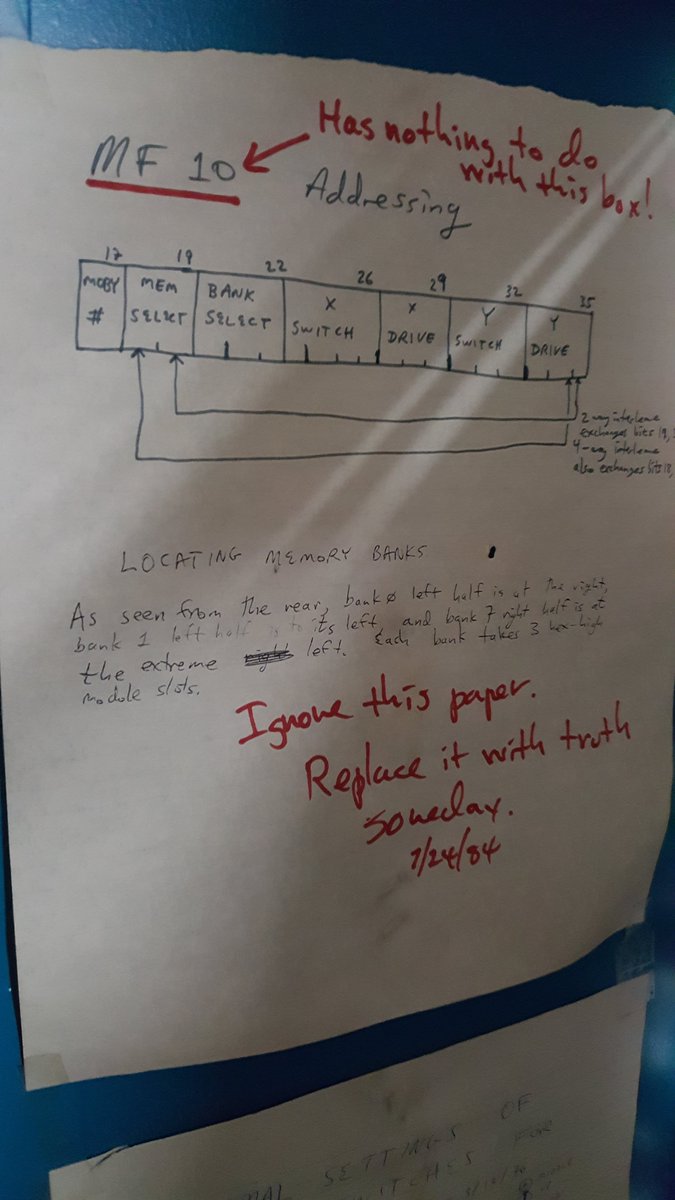 MF 10
Has nothing to do
with this box!
Addressing
17 19 22 26 29 32 35
MOBY
#
MEM
SELECT
BANK
SELECT
X
SWITCH
X
DRIVE
Y
SWITCH
Y
DRIVE
2 way interleave
exchanges bits 19,
4-way interleave
also exchanges bits 18,
LOCATING MEMORY BANKS
As seen from the rear, bank 0 left half is at the right,
bank 1 left half is to its left, and bank 7 right half is at
the extreme left. Each bank takes 3 hex-high
module slots.
Ignore this paper.
Replace it with truth
someday.
7/24/84
SETTINGS OF
FOR